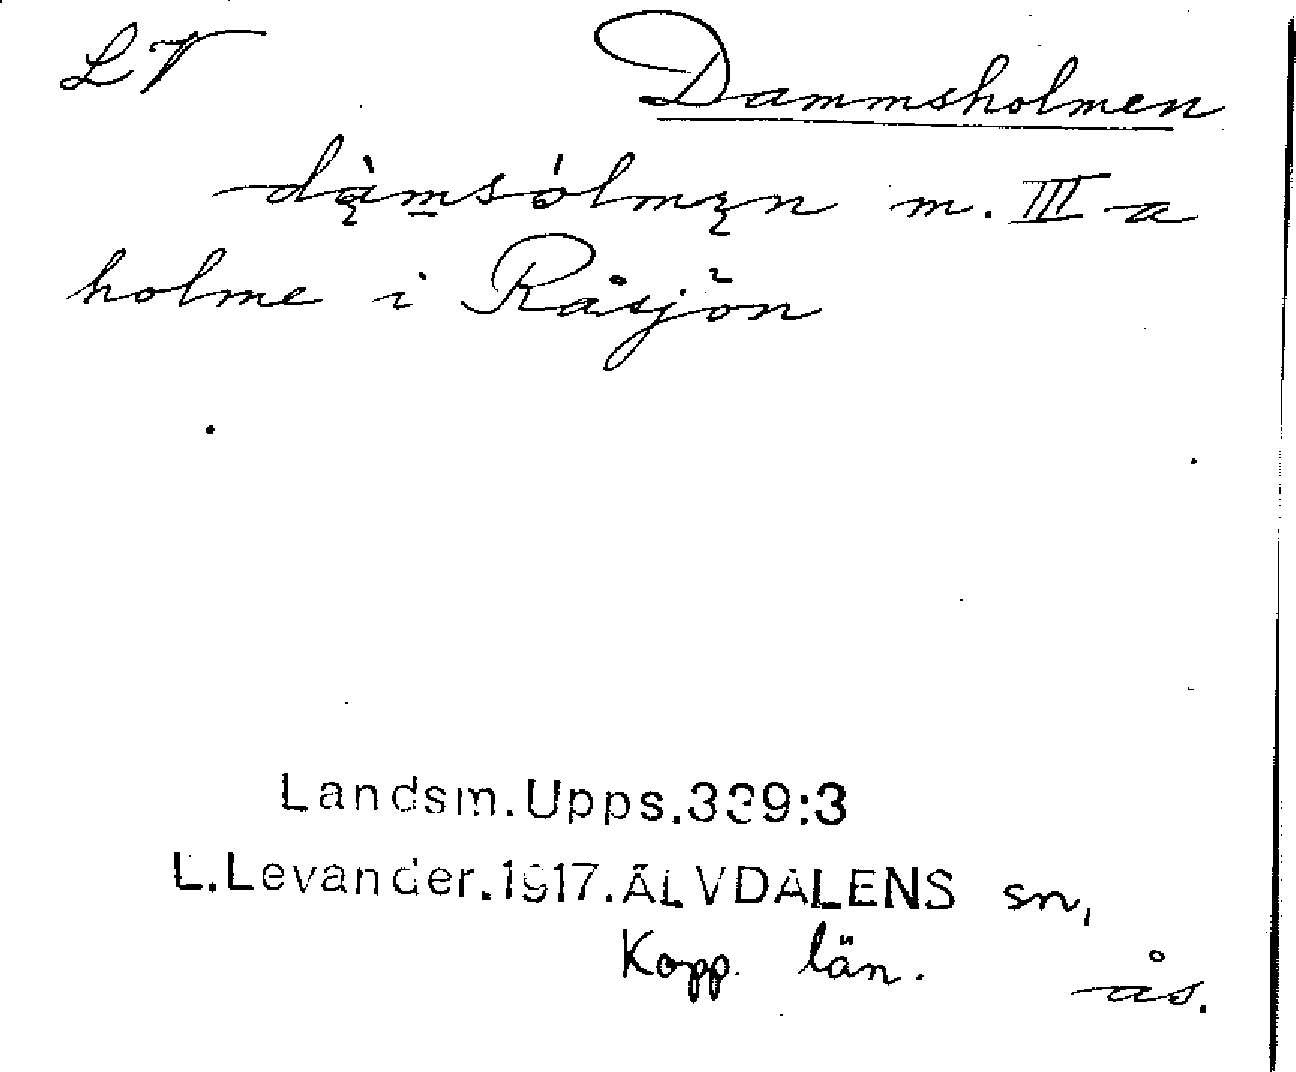 LT Dammsholmen
dą̀m̲sólmęn m. III a
holme i Råsjön
Landsm.Upps.339:3
L.Levander.1917.ÄLVDALENS sn,
Kopp. län.
ås.